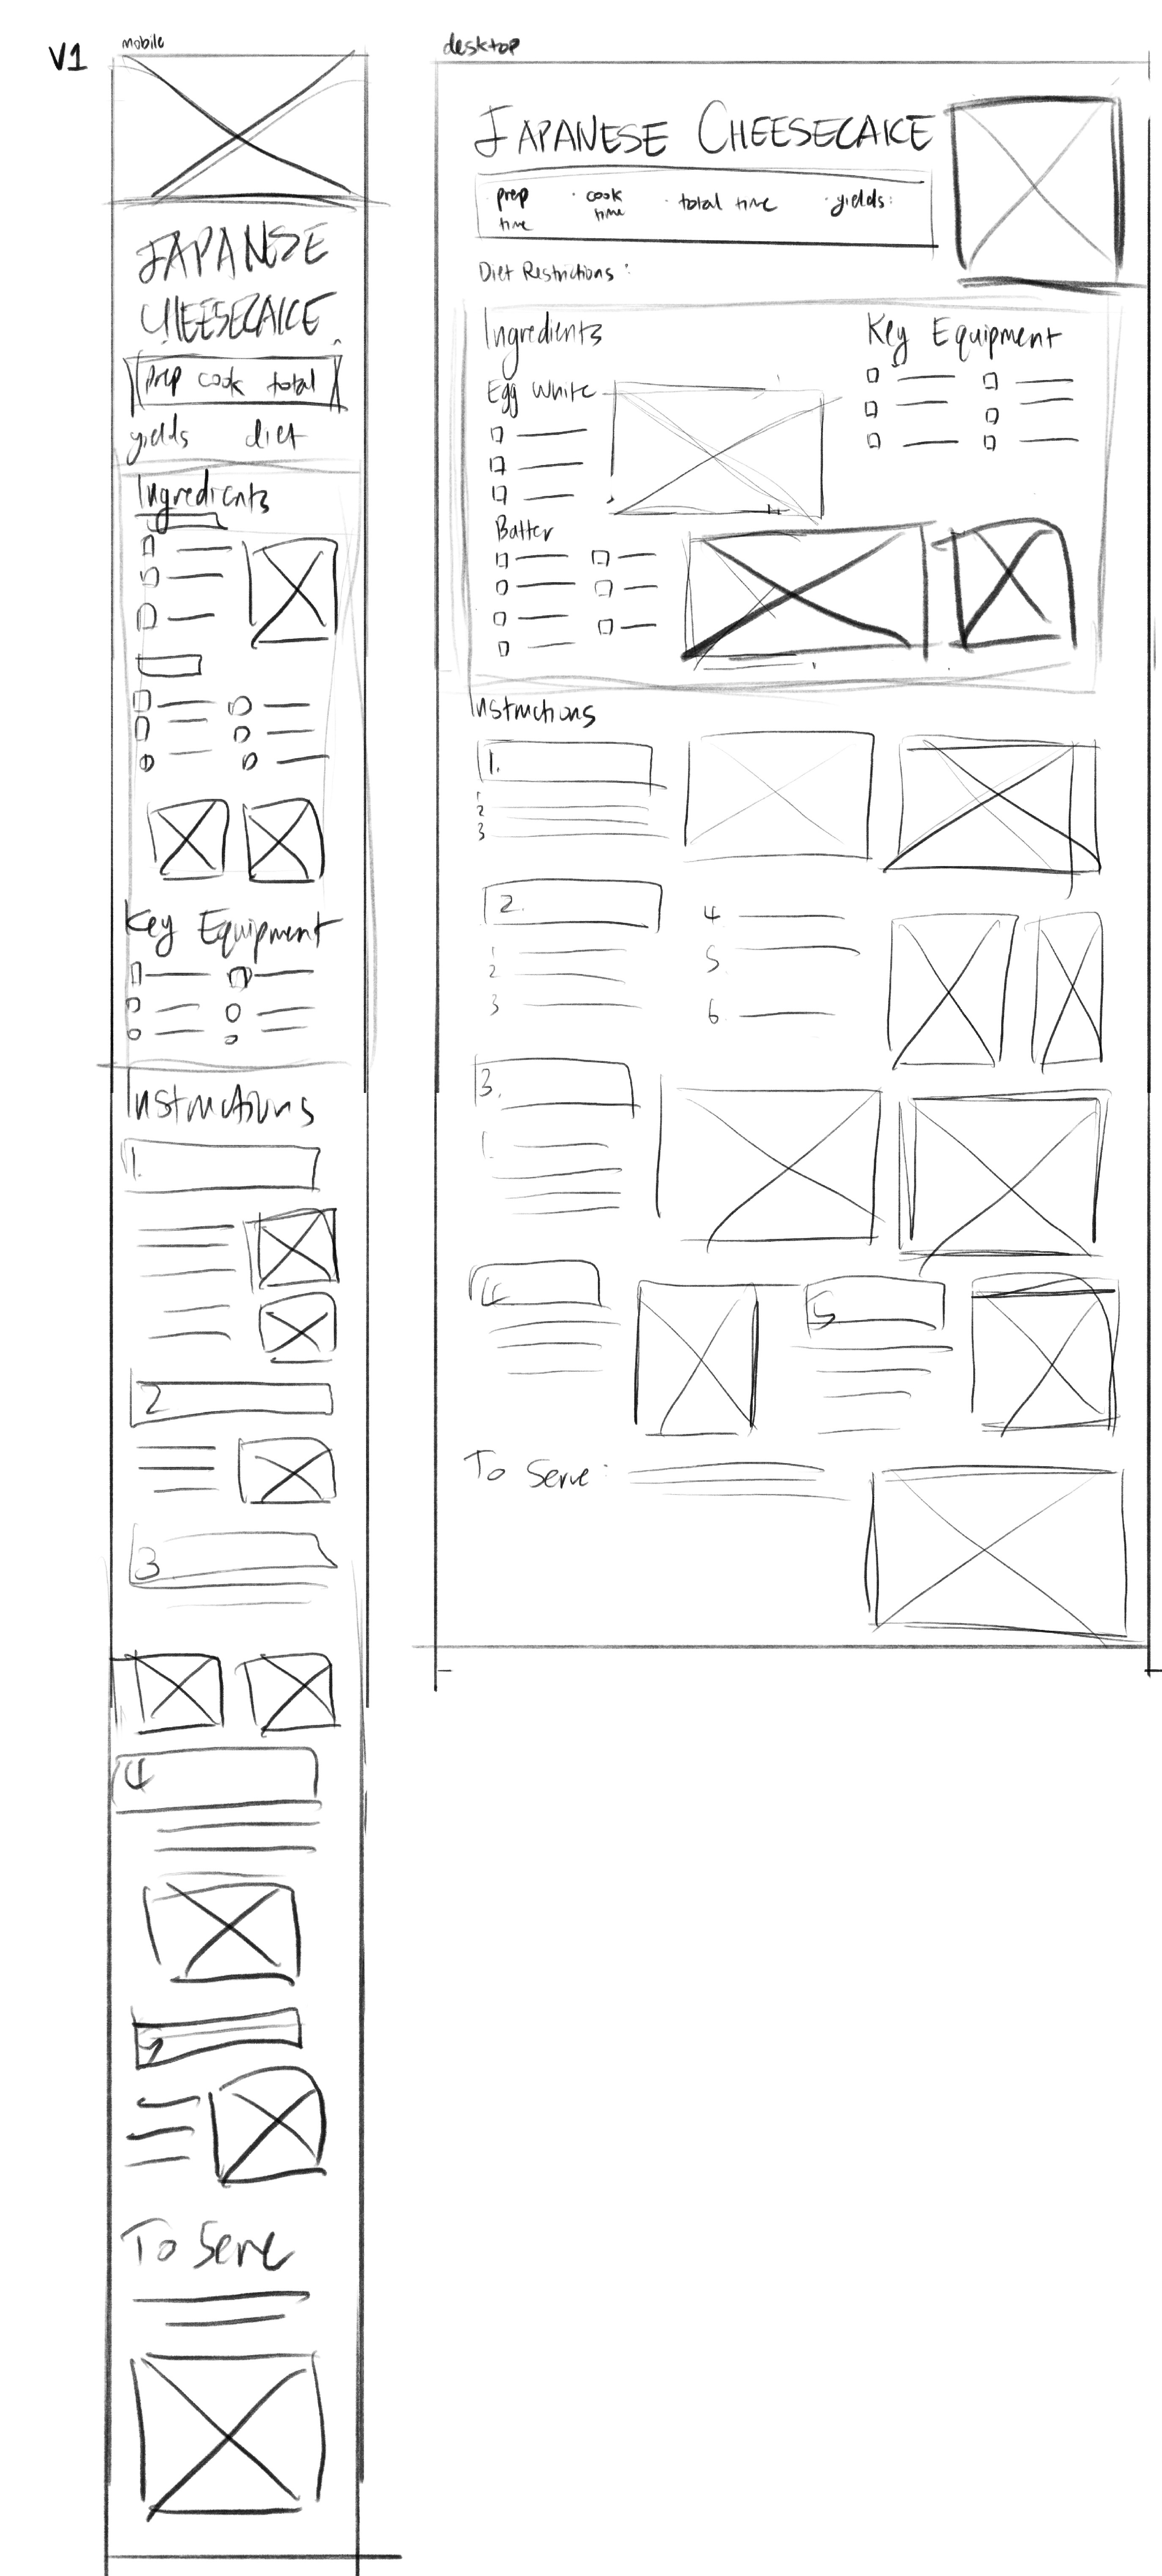 V1
mobile
JAPANESE
CHEESECAKE
prep cook total
yields diet
Ingredients
Key Equipment
Instructions
1.
2
3
4
5
To Serve
desktop
JAPANESE CHEESECAKE
prep time · cook time · total time · yields:
Diet Restrictions:
Ingredients
Egg White
Batter
Key Equipment
Instructions
1.
1
2
3
2.
1
2
3
4
5
6
3.
1
4
5
To Serve: